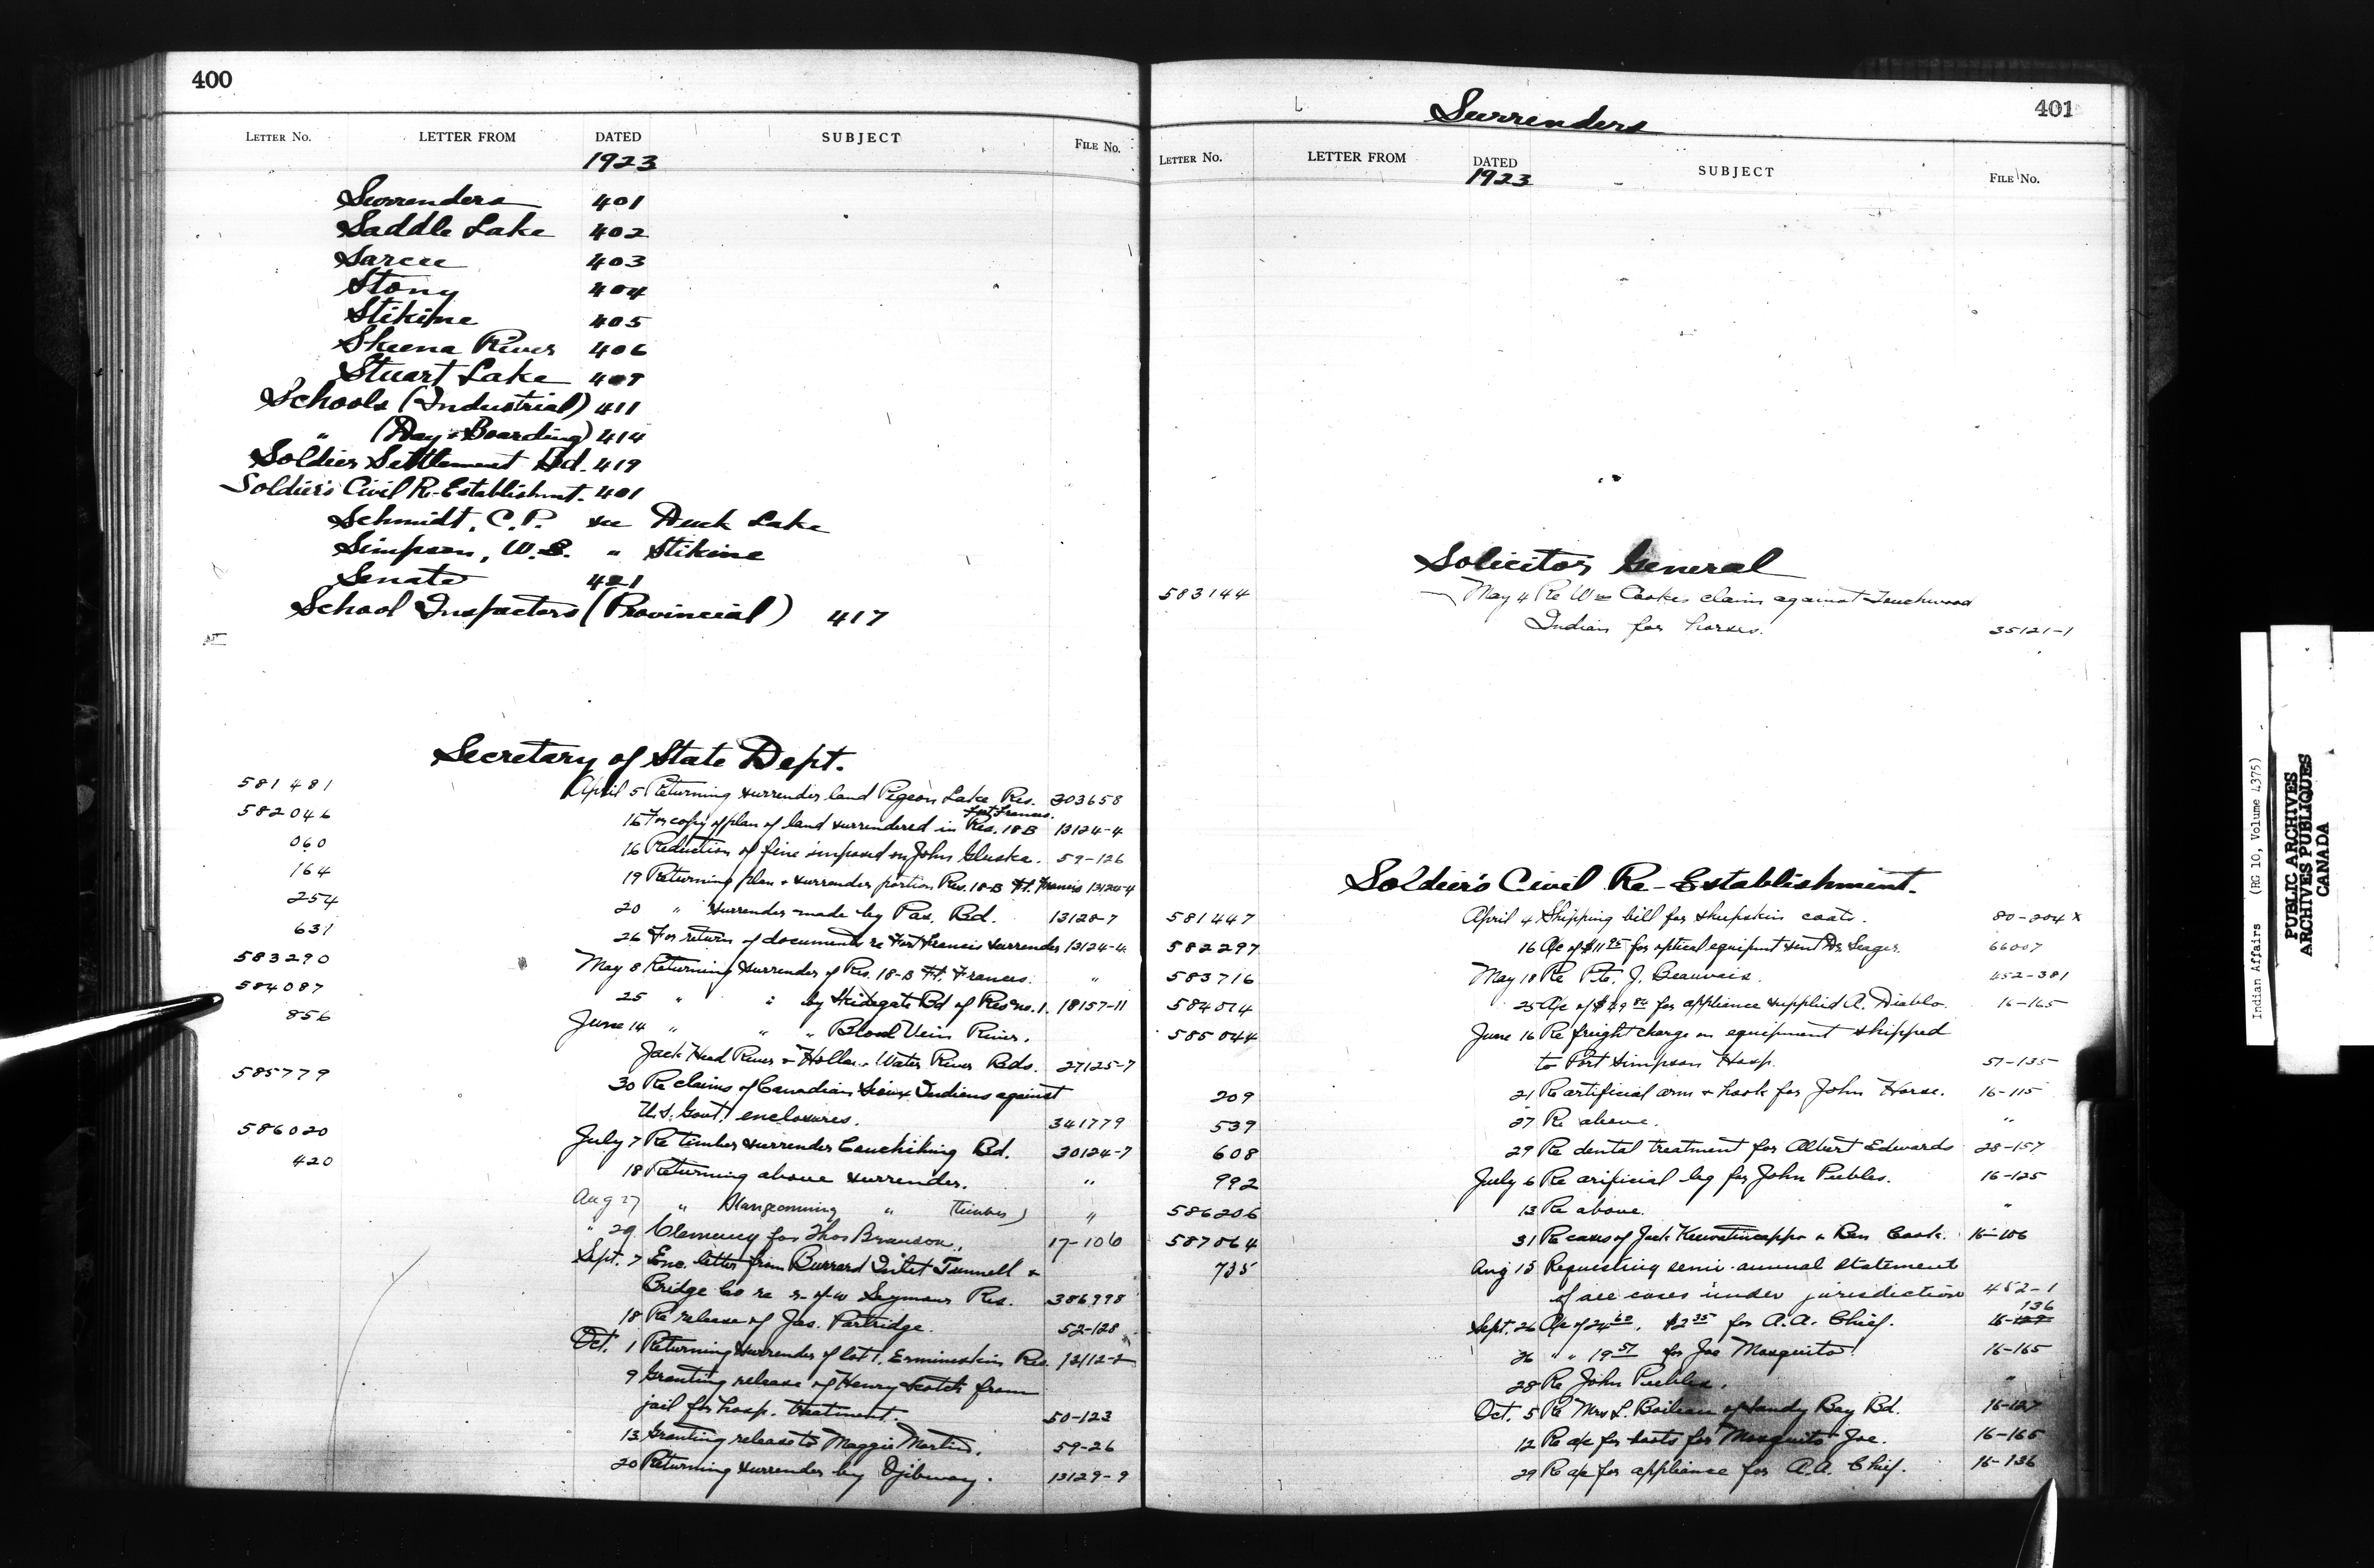 400
LETTER No. LETTER FROM DATED SUBJECT FILE No.
1923
Surrenders 401
Saddle Lake 402
Sarcee 403
Stony 404
Stikine 405
Skeena River 406
Stuart Lake 409
Schools (Industrial) 411
" (Day & Boarding) 414
Soldier Settlement Bd. 419
Soldier's Civil R-Establishmt. 401
Schmidt, C.P. see Duck Lake
Simpson, W.S. " Stikine
Senate 421
School Inspectors (Provincial) 417
Secretary of State Dept.
581481 April 5 Returning surrender land Pigeon Lake Res. 303658
Fort Frances
582046 16 For copy of plan of land surrendered in Res. 18-B 13124-4
060 16 Reduction of fine imposed on John Gluska. 59-126
164 19 Returning plan & surrender portion Res. 18-B Ft. Francis 13124-4
254 20 " surrender made by Pas. Bd. 13128-7
631 26 For return of documents re Fort Francis surrender 13124-4
583290 May 8 Returning surrender of Res. 18-B Ft. Frances. "
584087 25 " " by Skidegate Bd of Res no. 1. 18157-11
856 June 14 " " " Blood Vein River,
Jack Head River & Hollow Water River Bds. 27125-7
585779 30 Re claims of Canadian Sioux Indians against
U.S. Govt. enclosures. 341779
586020 July 7 Re timber surrender Couchiching Bd. 30124-7
420 18 Returning above surrender. "
Aug 27 " " (timber) "
" 29 Clemency for Thos Branson. 17-106
Sept. 7 Enc. letter from Burrard Inlet Tunnell &
Bridge Co re r-of-w Seymour Res. 386998
18 Re release of Jas. Partridge. 52-128
Oct. 1 Returning surrender of lot 1, Ermineskin Res. 13112-2
9 Granting release of Henry Scotch from
jail for hosp. treatment. 50-123
13 Granting release to Maggie Martin. 59-26
20 Returning surrender by Ojibway. 13129-9
401
Surrenders
LETTER No. LETTER FROM DATED SUBJECT FILE No.
1923
Solicitor General
583144 May 4 Re Wm Cookes claim against Touchwood
Indian for horses. 35121-1
Soldier's Civil Re-Establishment.
581447 April 4 Shipping bill for sheepskin coats. 80-204 x
582297 16 A/c of $11 25 for optical equipmt sent Dr. Seager. 66007
583716 May 18 Re Pte. J. Beauvais. 452-381
584014 25 A/c of $49 84 for appliance supplied A. Diablo. 16-165
585044 June 16 Re freight charge on equipment shipped
to Port Simpson Hosp. 57-135
209 21 Re artificial arm & hook for John Horse. 16-115
539 27 Re above. "
608 29 Re dental treatment for Albert Edwards 28-157
992 July 6 Re arificial leg for John Peebles. 16-125
586206 13 Re above. "
587064 31 Re cases of Jack & Ben Cook. 16-106
735 Aug 15 Requesting semi-annual statement
of all cases under jurisdiction 452-1
136
Sept. 26 A/c of 24 62, $2 35 for A.A. Chief. 16-127
26 " " 19 57 for Joe Mosquito. 16-165
28 Re John Peebles. "
Oct. 5 Re Mrs L. Boileau of Sandy Bay Bd. 16-127
12 Re a/c for boots for Mosquito Joe. 16-165
29 Re a/c for appliance for A.A. Chief. 16-136
Indian Affairs (RG 10, Volume 4375)
PUBLIC ARCHIVES
ARCHIVES PUBLIQUES
CANADA